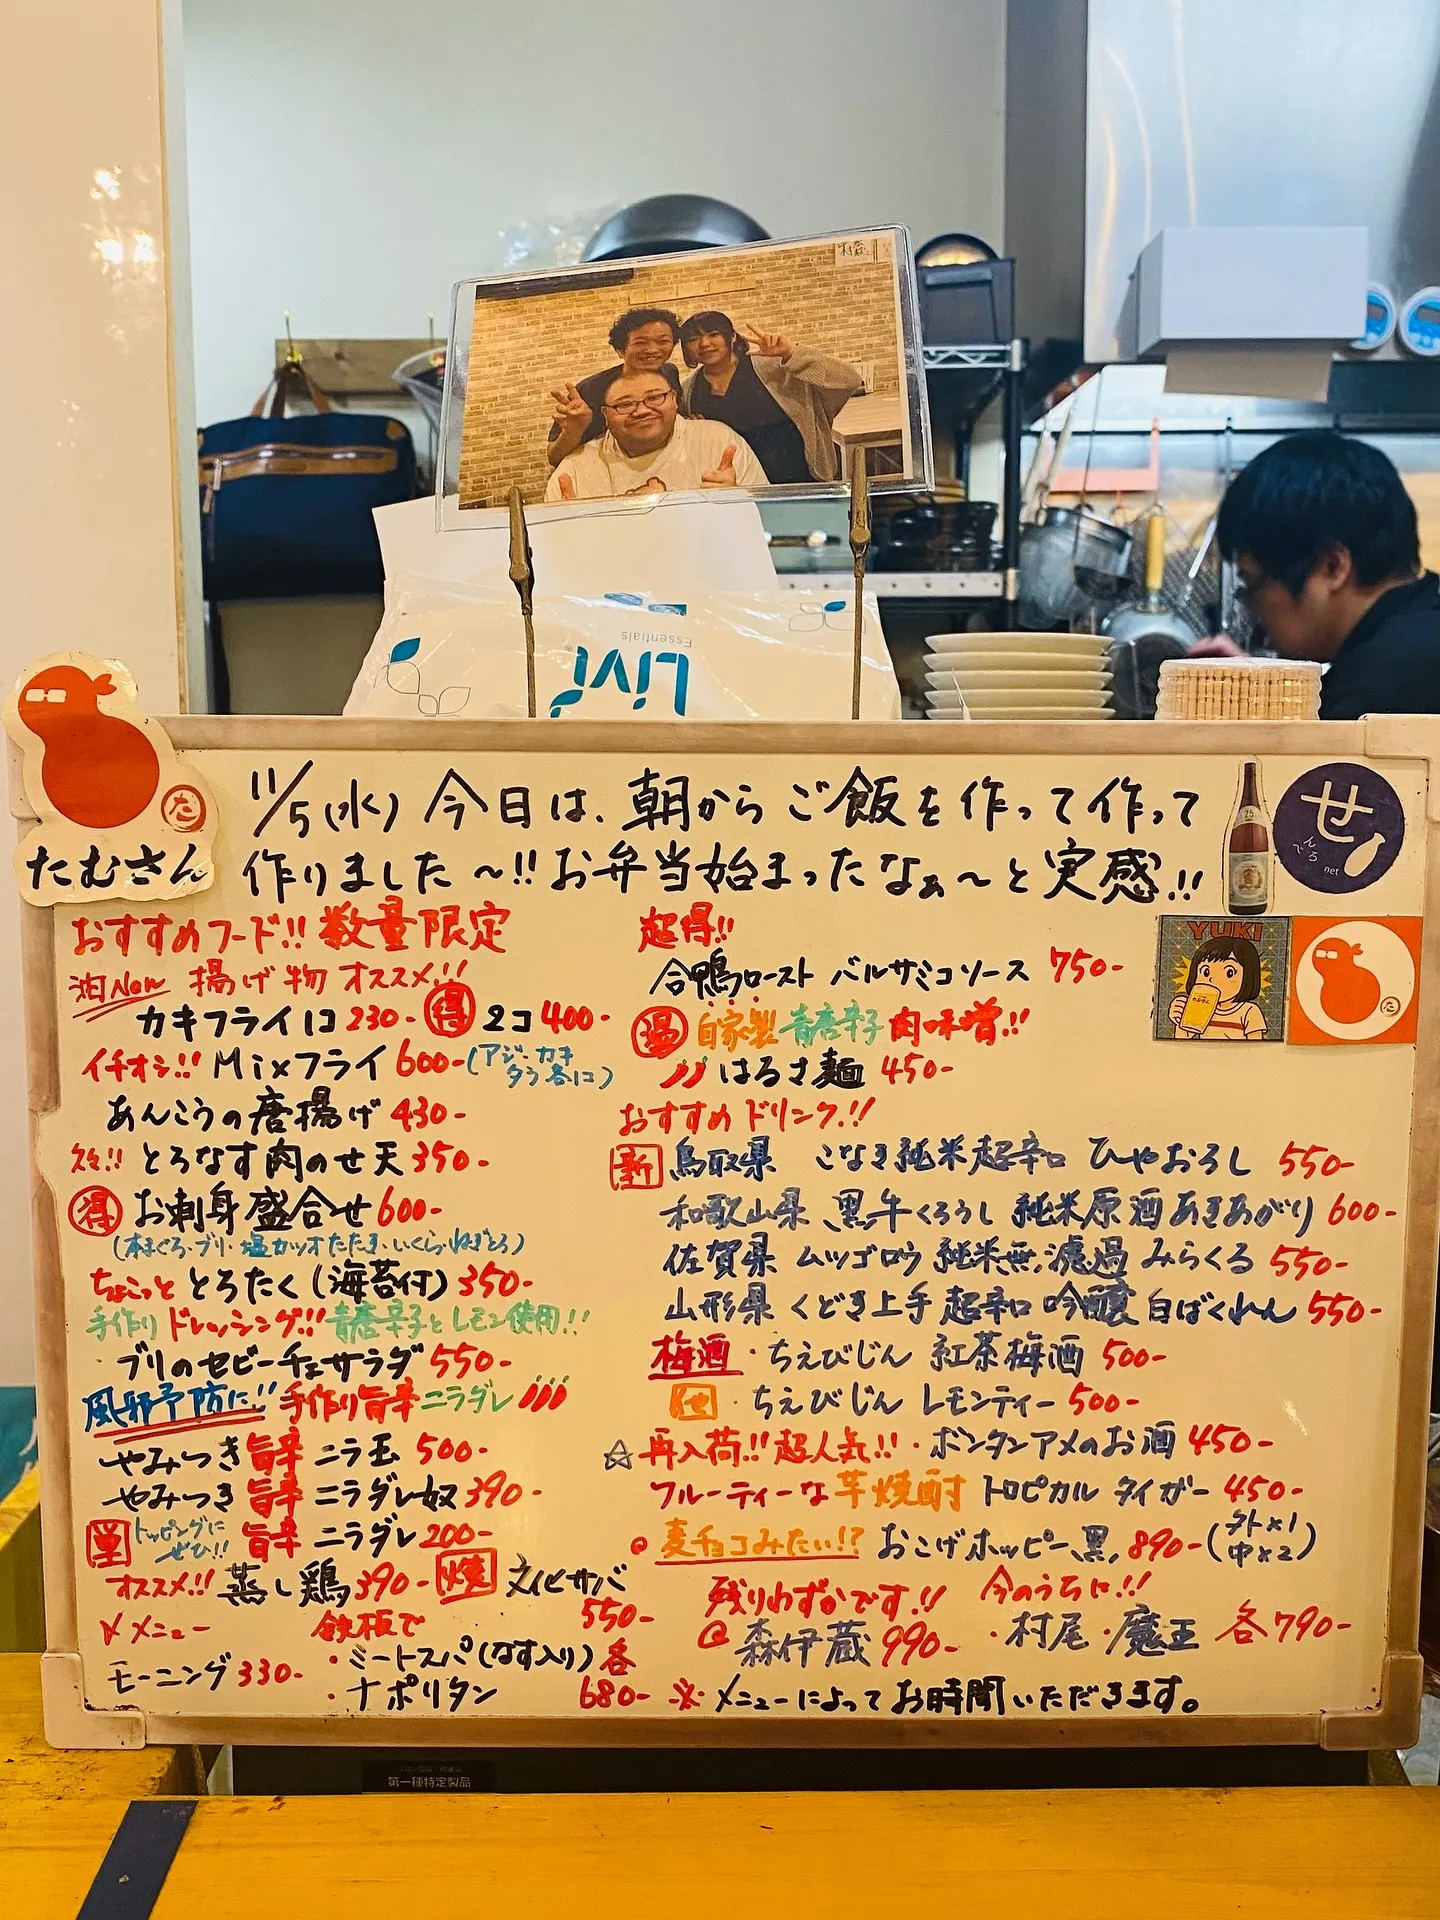 村蔵
Livi
Essentials
たむさん
た
11/5(水) 今日は、朝からご飯を作って作って
作りました〜!!お弁当始まったなぁ〜と実感!!
せ
んべろ
net
25
YUKI
おすすめフード!! 数量限定
油New 揚げ物 オススメ!!
カキフライ 1コ 230- 得 2コ 400-
イチオシ!! Mixフライ 600- (アジ・カキ
タラ各1コ)
あんこうの唐揚げ 430-
久々!! とろなす肉のせ天 350-
得 お刺身盛合せ 600-
(本まぐろ・ブリ・塩カツオたたき・いくら・ねぎとろ)
ちょこっと とろたく(海苔付) 350-
手作りドレッシング!! 青唐辛子とレモン使用!!
・ブリのセビーチェサラダ 550-
風邪予防に!! 手作り旨辛ニラダレ
やみつき旨辛ニラ玉 500-
やみつき旨辛ニラダレ奴 390-
単 トッピングに
ぜひ!! 旨辛ニラダレ 200-
オススメ!! 蒸し鶏 390- 焼 文化サバ
550-
〆メニュー 鉄板で
モーニング 330- ・ミートスパ(なす入り) 各
・ナポリタン 680-
超得!!
合鴨ロースト バルサミコソース 750-
温 自家製青唐辛子肉味噌!!
はるさ麺 450-
おすすめドリンク!!
新 鳥取県 こなき純米超辛口 ひやおろし 550-
和歌山県 黒牛くろうし 純米原酒あきあがり 600-
佐賀県 ムツゴロウ 純米無濾過 みらくる 550-
山形県 くどき上手 超辛口 吟醸 白ばくれん 550-
梅酒 ・ちえびじん 紅茶梅酒 500-
他 ・ちえびじん レモンティー 500-
☆再入荷!!超人気!!・ボンタンアメのお酒 450-
フルーティーな芋焼酎 トロピカル タイガー 450-
麦チョコみたい!? おこげホッピー黒 890- (外×1
中×2)
残りわずかです!! 今のうちに!!
@森伊蔵 990- ・村尾・魔王 各790-
※メニューによってお時間いただきます。
第一種特定製品